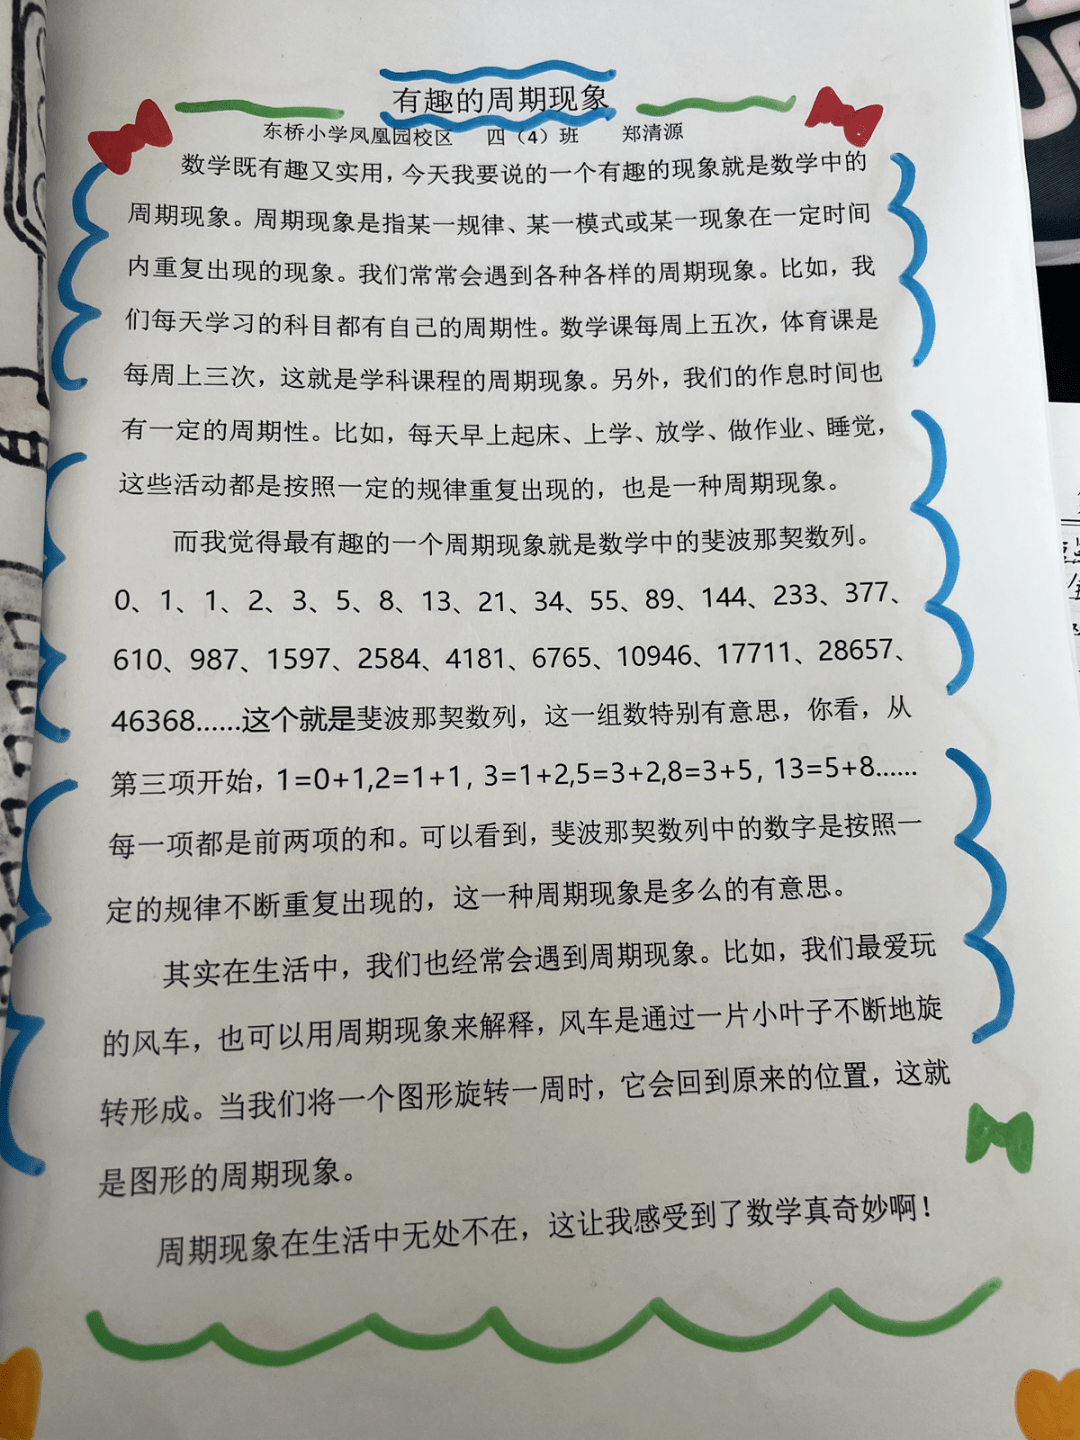 有趣的周期现象
东桥小学凤凰园校区 四（4）班 郑清源
数学既有趣又实用，今天我要说的一个有趣的现象就是数学中的
周期现象。周期现象是指某一规律、某一模式或某一现象在一定时间
内重复出现的现象。我们常常会遇到各种各样的周期现象。比如，我
们每天学习的科目都有自己的周期性。数学课每周上五次，体育课是
每周上三次，这就是学科课程的周期现象。另外，我们的作息时间也
有一定的周期性。比如，每天早上起床、上学、放学、做作业、睡觉，
这些活动都是按照一定的规律重复出现的，也是一种周期现象。
而我觉得最有趣的一个周期现象就是数学中的斐波那契数列。
0、1、1、2、3、5、8、13、21、34、55、89、144、233、377、
610、987、1597、2584、4181、6765、10946、17711、28657、
46368……这个就是斐波那契数列，这一组数特别有意思，你看，从
第三项开始，1=0+1,2=1+1, 3=1+2,5=3+2,8=3+5, 13=5+8……
每一项都是前两项的和。可以看到，斐波那契数列中的数字是按照一
定的规律不断重复出现的，这一种周期现象是多么的有意思。
其实在生活中，我们也经常会遇到周期现象。比如，我们最爱玩
的风车，也可以用周期现象来解释，风车是通过一片小叶子不断地旋
转形成。当我们将一个图形旋转一周时，它会回到原来的位置，这就
是图形的周期现象。
周期现象在生活中无处不在，这让我感受到了数学真奇妙啊！